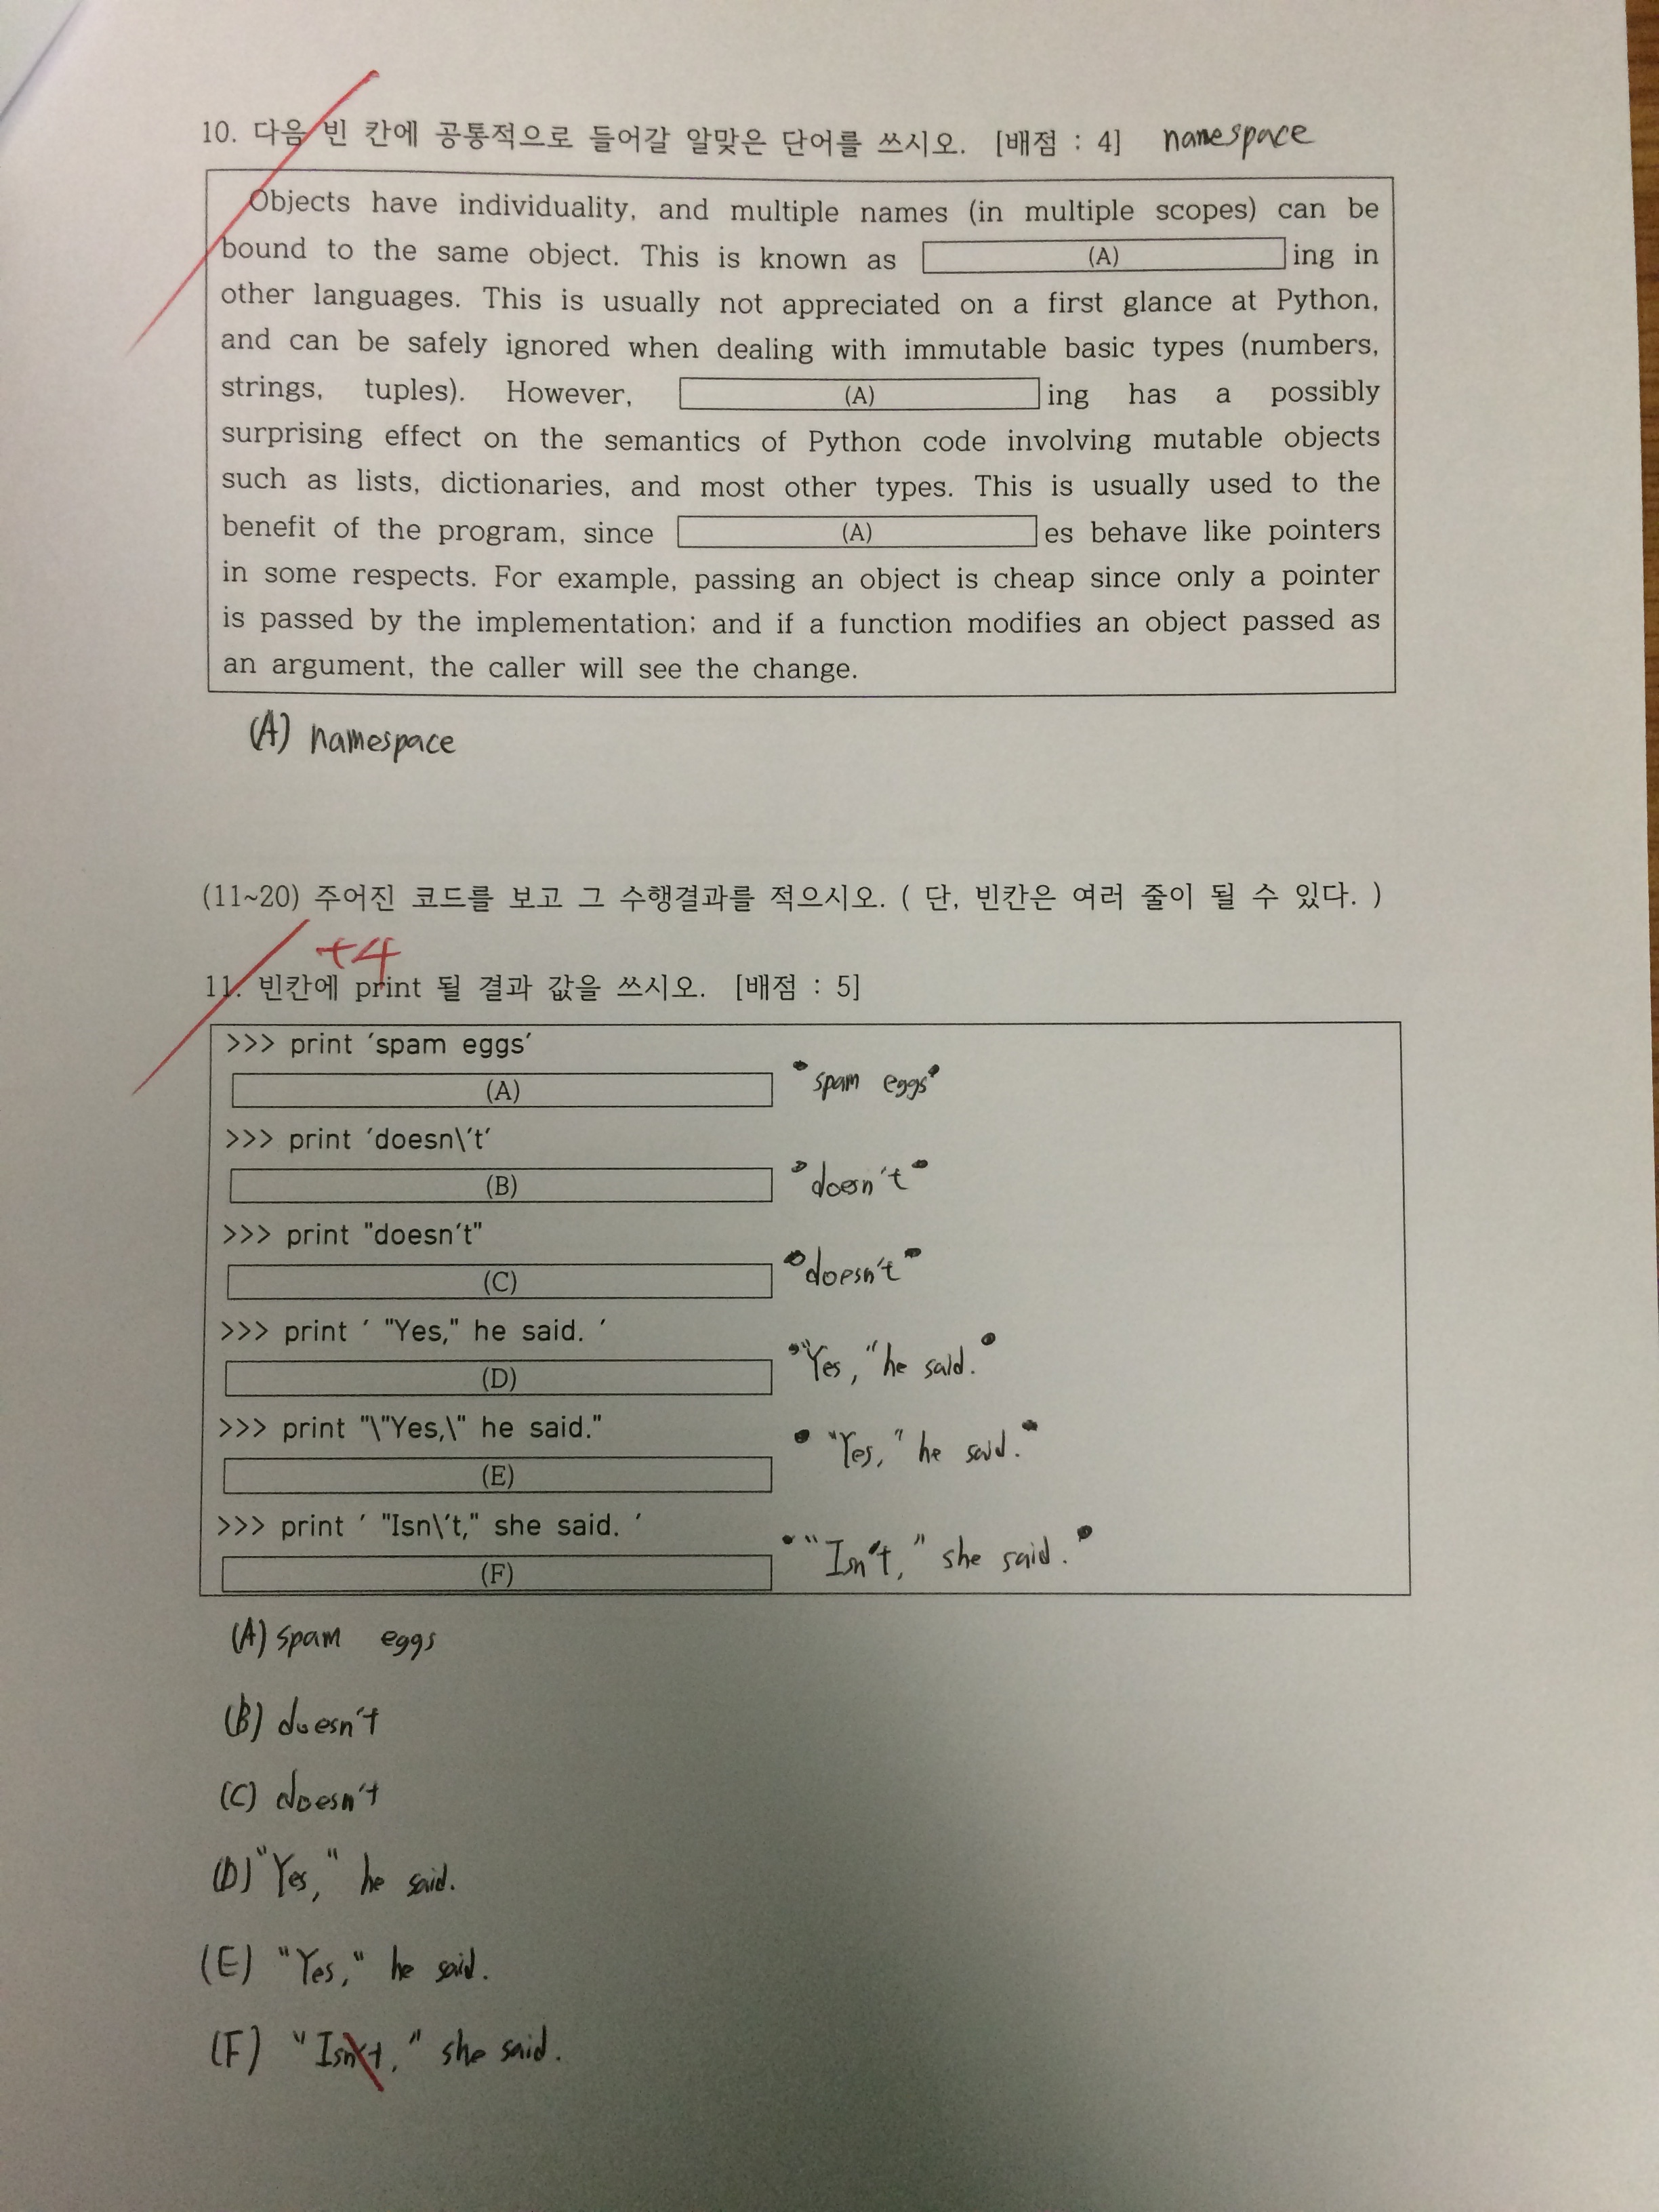 10. 다음 빈 칸에 공통적으로 들어갈 알맞은 단어를 쓰시오. [배점 : 4] namespace
Objects have individuality, and multiple names (in multiple scopes) can be
bound to the same object. This is known as (A) ing in
other languages. This is usually not appreciated on a first glance at Python,
and can be safely ignored when dealing with immutable basic types (numbers,
strings, tuples). However, (A) ing has a possibly
surprising effect on the semantics of Python code involving mutable objects
such as lists, dictionaries, and most other types. This is usually used to the
benefit of the program, since (A) es behave like pointers
in some respects. For example, passing an object is cheap since only a pointer
is passed by the implementation; and if a function modifies an object passed as
an argument, the caller will see the change.
(A) namespace
(11~20) 주어진 코드를 보고 그 수행결과를 적으시오. ( 단, 빈칸은 여러 줄이 될 수 있다. )
+4
11. 빈칸에 print 될 결과 값을 쓰시오. [배점 : 5]
>>> print 'spam eggs'
(A) spam eggs
>>> print 'doesn\'t'
(B) doesn't
>>> print "doesn't"
(C) doesn't
>>> print ' "Yes," he said. '
(D) "Yes," he said.
>>> print "\"Yes,\" he said."
(E) "Yes," he said.
>>> print ' "Isn\'t," she said. '
(F) "Isn't," she said.
(A) spam eggs
(B) doesn't
(C) doesn't
(D) "Yes," he said.
(E) "Yes," he said.
(F) "Isn't," she said.